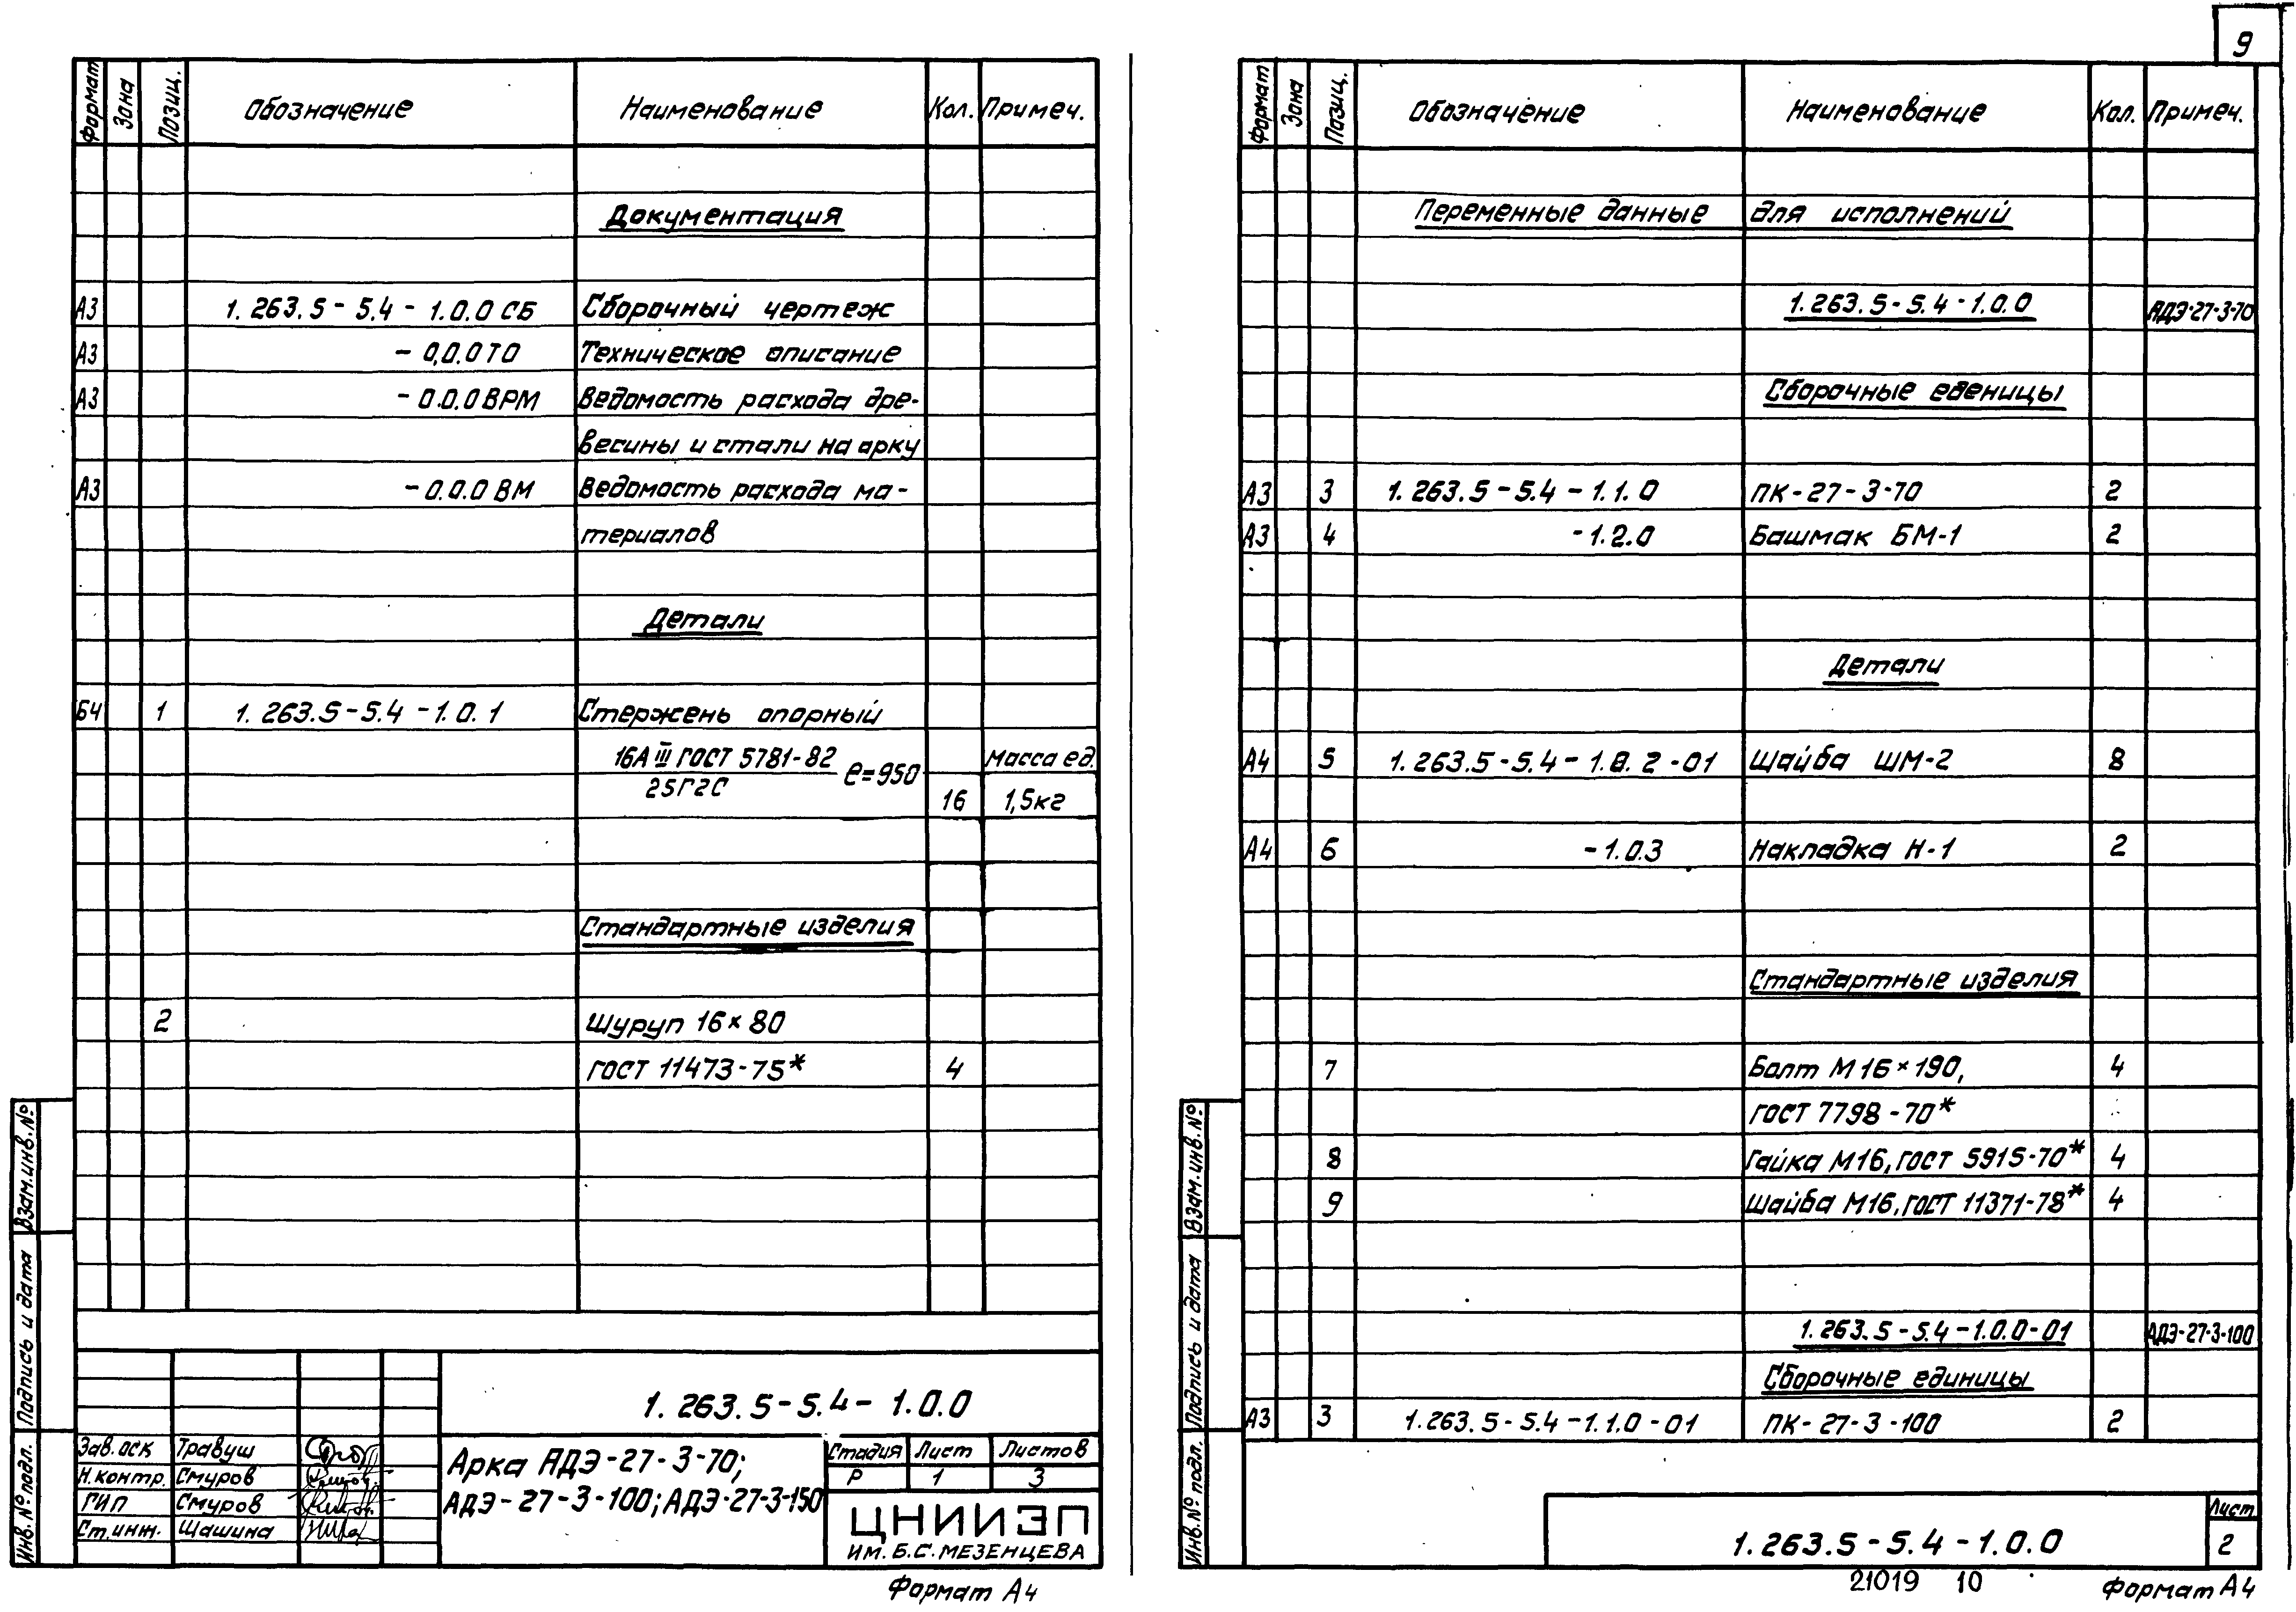 9
Формат Зона Позиц. Обозначение Наименование Кол. Примеч.
Документация
А3 1.263.5-5.4-1.0.0 СБ Сборочный чертеж
А3 -0.0.0 ТО Техническое описание
А3 -0.0.0 ВРМ Ведомость расхода дре-
весины и стали на арку
А3 -0.0.0 ВМ Ведомость расхода ма-
териалов
Детали
Б4 1 1.263.5-5.4-1.0.1 Стержень опорный
16А III ГОСТ 5781-82 ℓ=950 Масса ед.
25Г2С 16 1,5кг
Стандартные изделия
2 Шуруп 16×80
ГОСТ 11473-75* 4
Взам.инв.№
Подпись и дата
Инв.№ подл.
1.263.5-5.4-1.0.0
Зав.оск Травуш
Н.контр. Смуров
ГИП Смуров
Ст.инж. Шашина
Арка АДЭ-27-3-70;
АДЭ-27-3-100; АДЭ-27-3-150
Стадия Лист Листов
Р 1 3
ЦНИИЭП
ИМ. Б.С.МЕЗЕНЦЕВА
Формат А4
Формат Зона Позиц. Обозначение Наименование Кол. Примеч.
Переменные данные для исполнений
1.263.5-5.4-1.0.0 АДЭ-27-3-70
Сборочные еденицы
А3 3 1.263.5-5.4-1.1.0 ПК-27-3-70 2
А3 4 -1.2.0 Башмак БМ-1 2
Детали
А4 5 1.263.5-5.4-1.0.2-01 Шайба ШМ-2 8
А4 6 -1.0.3 Накладка Н-1 2
Стандартные изделия
7 Болт М16×190, 4
ГОСТ 7798-70*
8 Гайка М16, ГОСТ 5915-70* 4
9 Шайба М16, ГОСТ 11371-78* 4
1.263.5-5.4-1.0.0-01 АДЭ-27-3-100
Сборочные единицы
А3 3 1.263.5-5.4-1.1.0-01 ПК-27-3-100 2
Взам.инв.№
Подпись и дата
Инв.№ подл.
1.263.5-5.4-1.0.0
Лист
2
21019 10
Формат А4